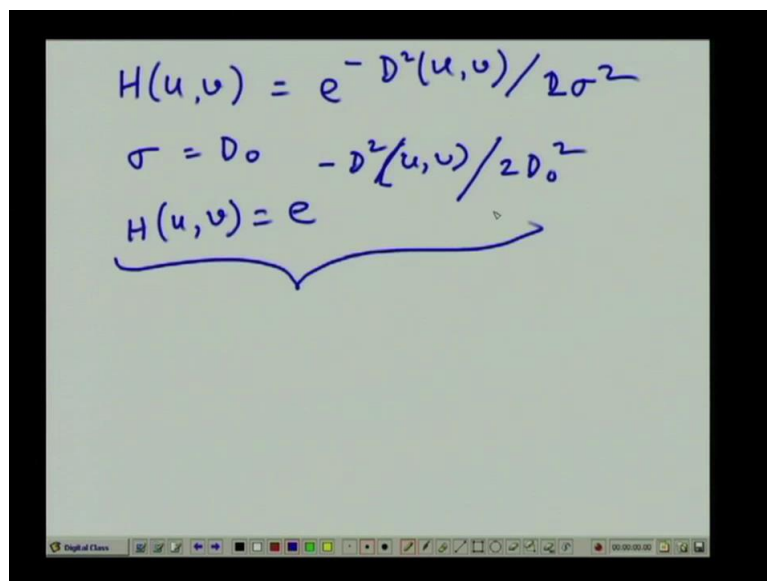 H(u,v) = e^{- D²(u,v)/2σ²}
σ = D₀
H(u,v) = e^{-D²(u,v)/2D₀²}
Digital Class
00:00:00:00